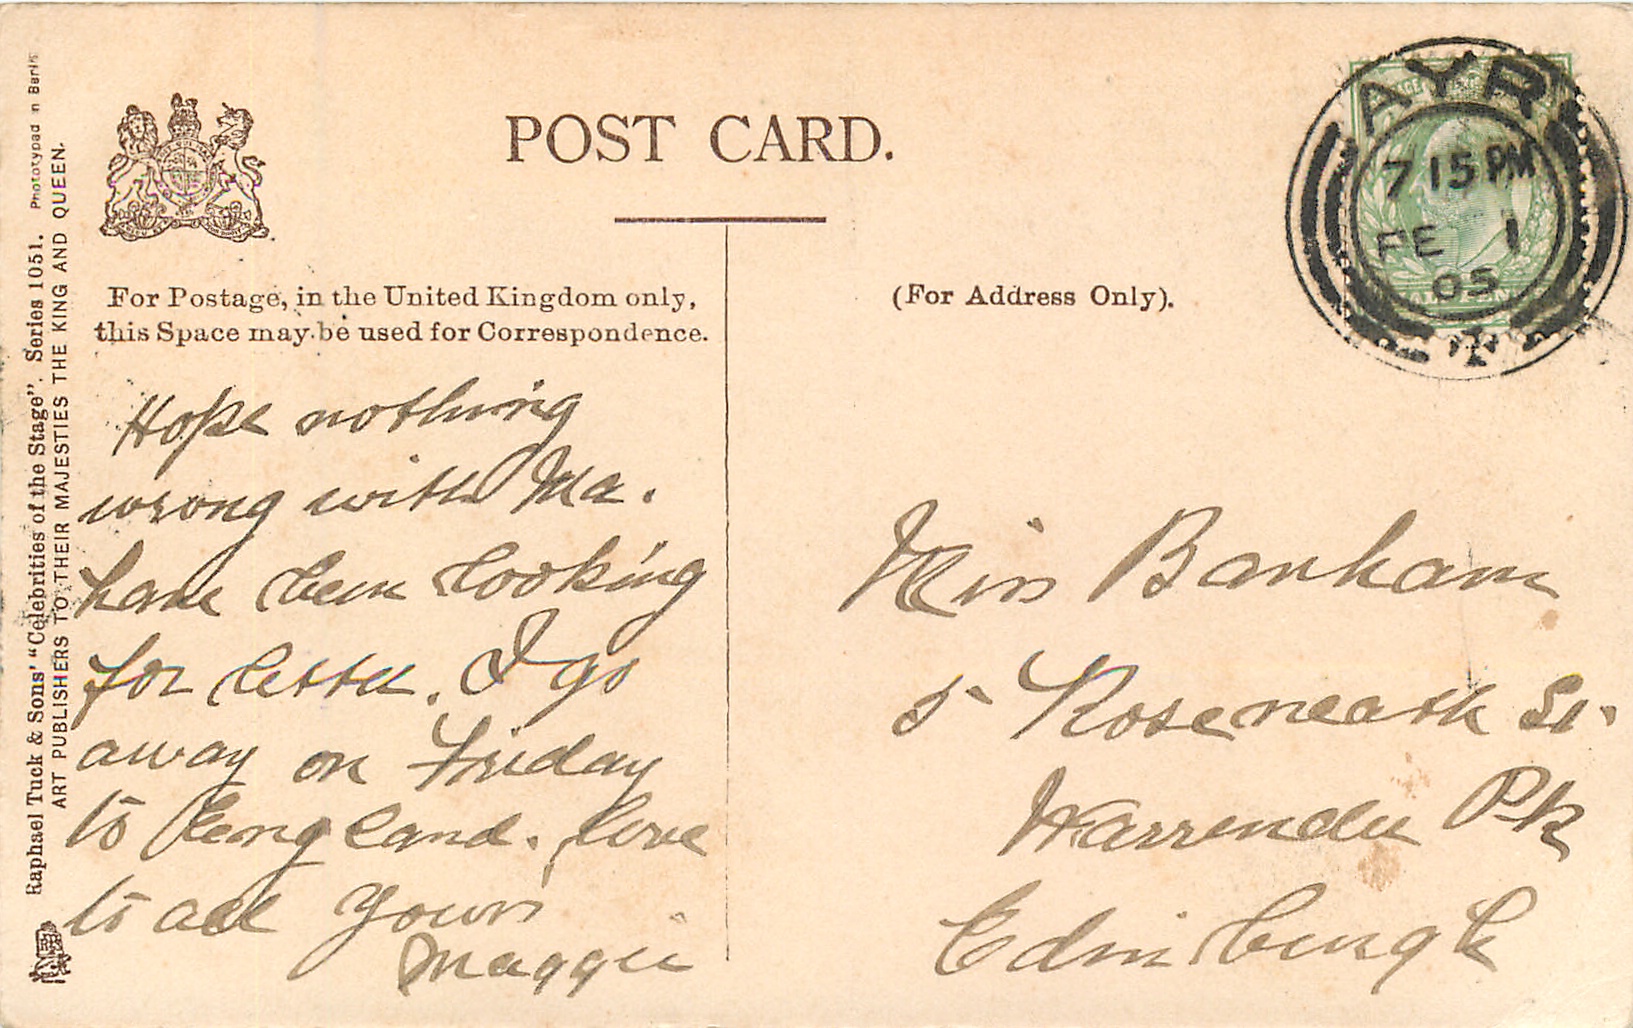 POST CARD.
For Postage, in the United Kingdom only,
this Space may be used for Correspondence.
(For Address Only).
AYR
7 15 PM
FE 1
05
Hope nothing
wrong with Ma.
have been looking
for letter. I go
away on Friday
to England. love
to all Yours
Maggie
Miss Banham
5 Roseneath St.
Warrender Pk
Edinburgh
Raphael Tuck & Sons' "Celebrities of the Stage". Series 1051. Phototyped in Berlin
ART PUBLISHERS TO THEIR MAJESTIES THE KING AND QUEEN.